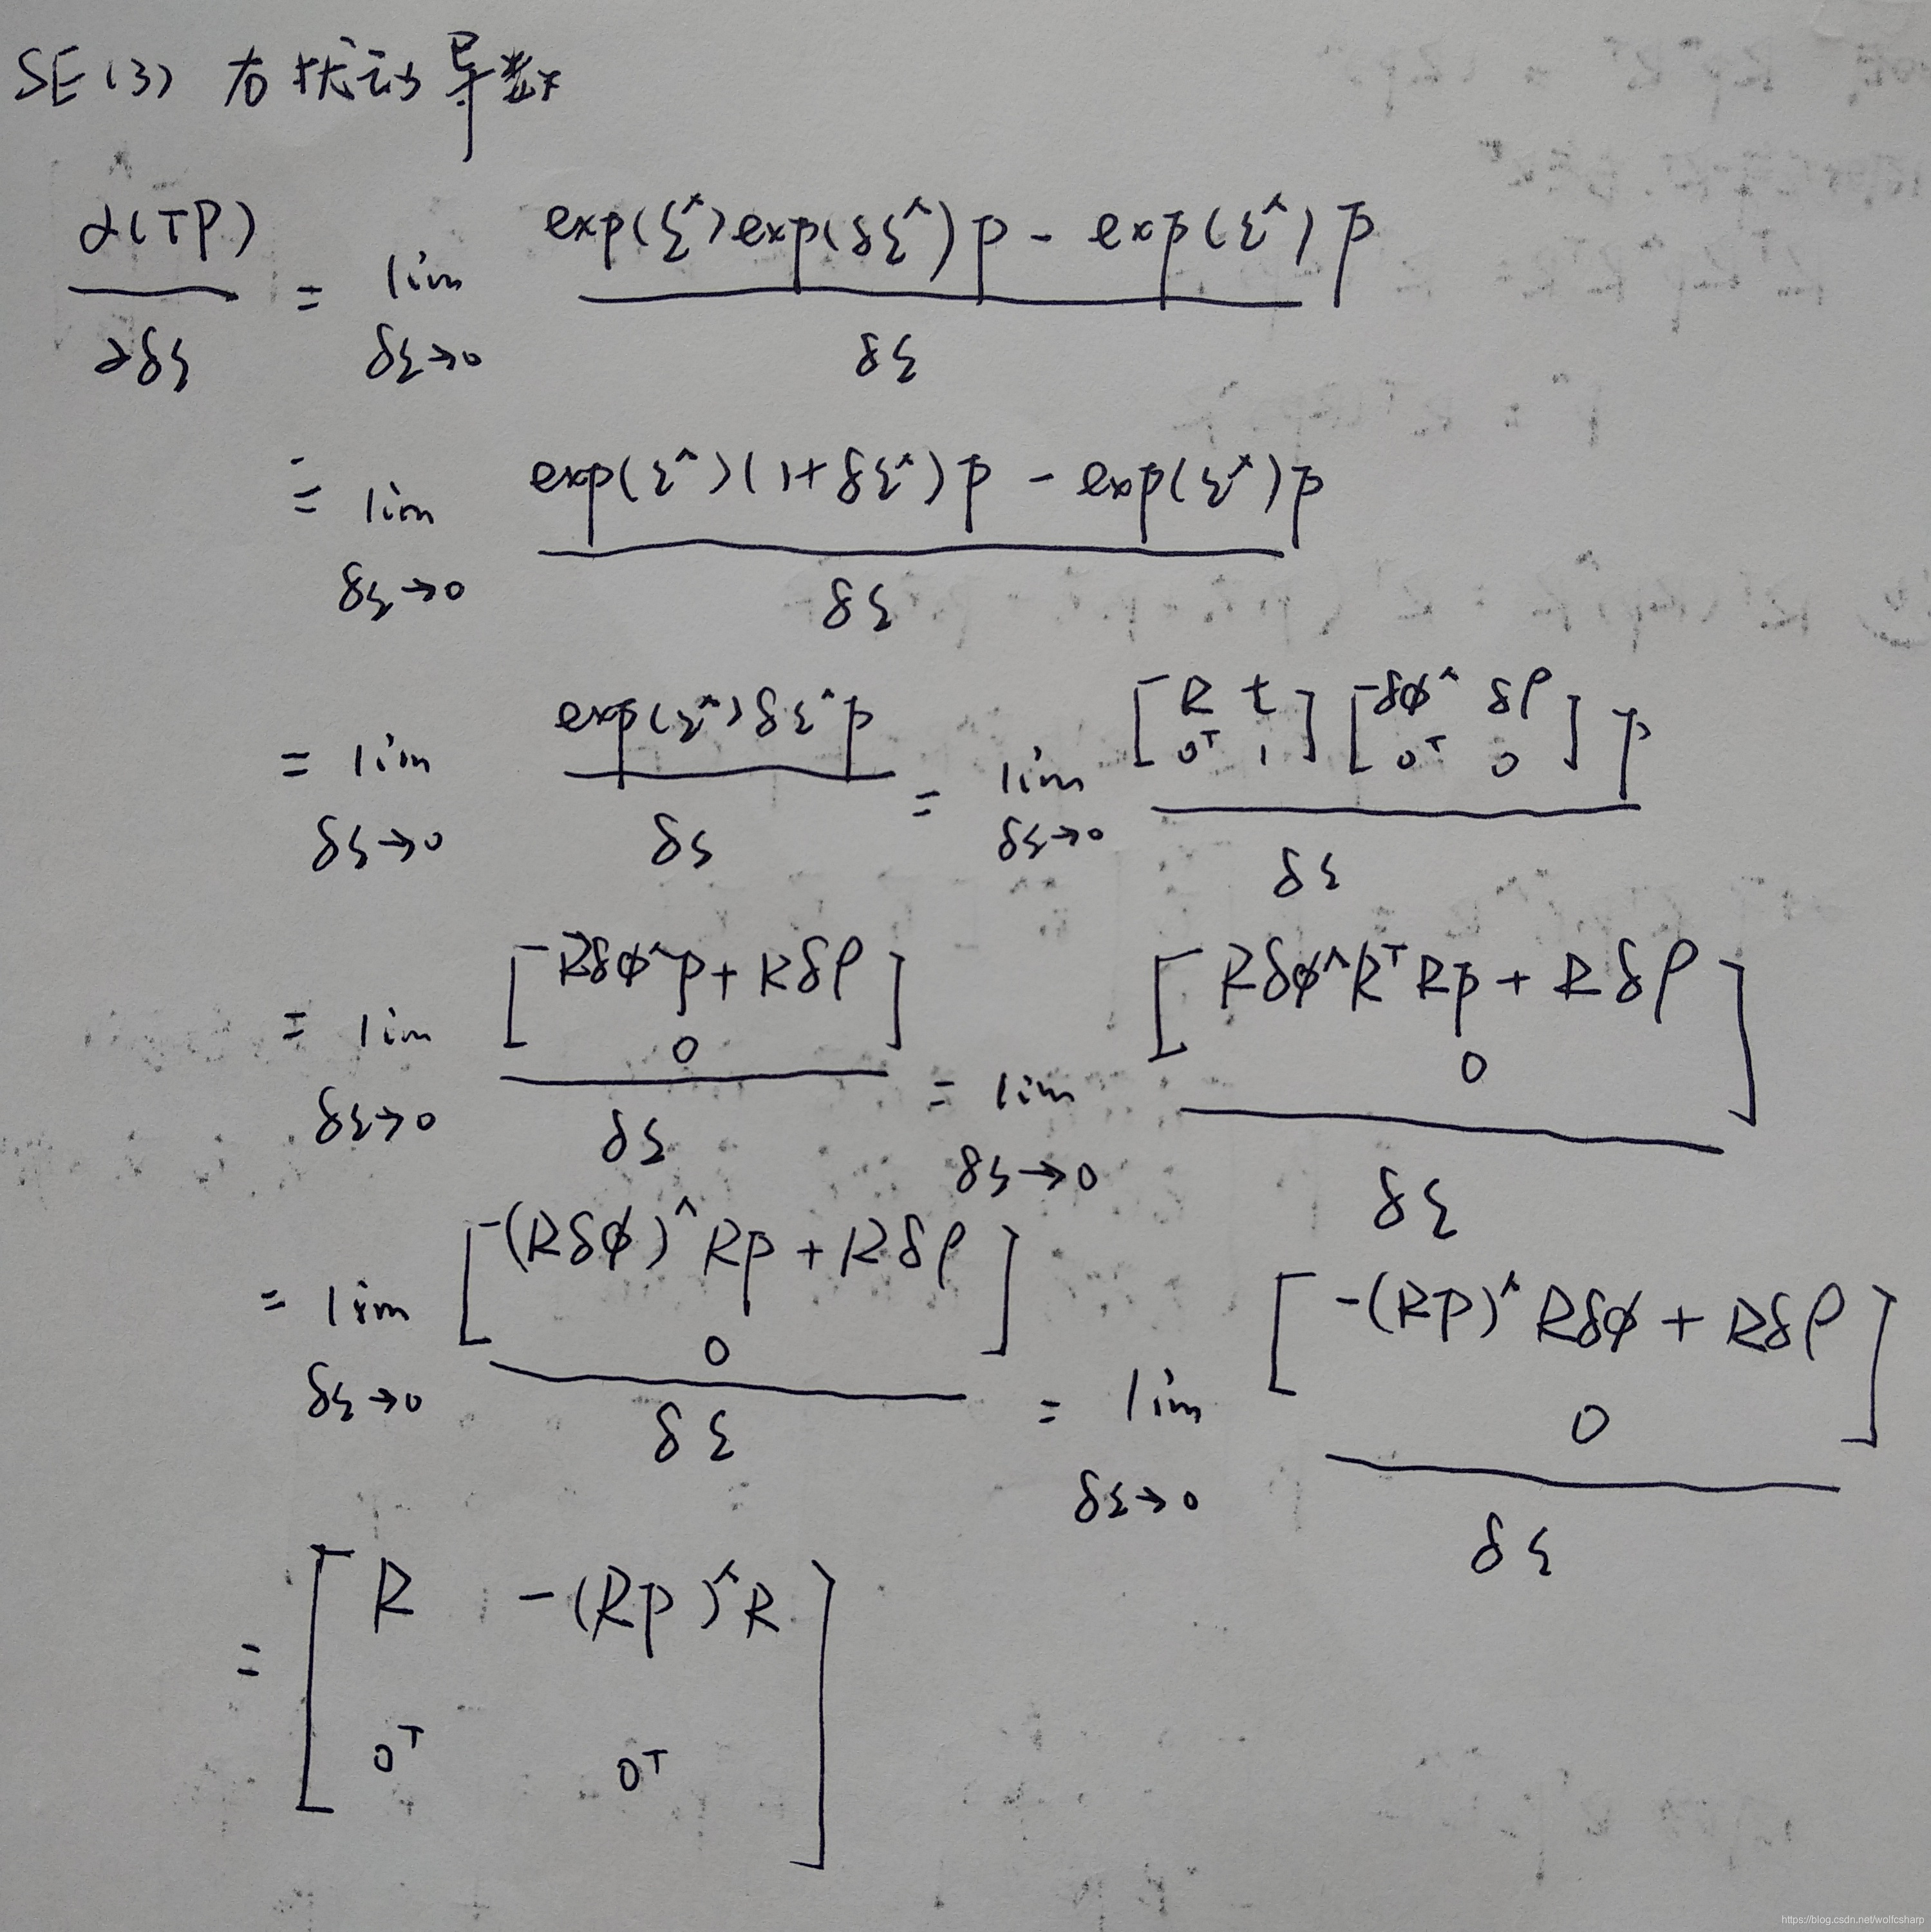 SE(3) 右扰动导数
∂(TP)/∂δξ = lim_{δξ→0} (exp(ξ^)exp(δξ^)p - exp(ξ^)p)/δξ
= lim_{δξ→0} (exp(ξ^)(1+δξ^)p - exp(ξ^)p)/δξ
= lim_{δξ→0} (exp(ξ^)δξ^p)/δξ = lim_{δξ→0} ([R t; 0^T 1][δφ^ δρ; 0^T 0]p)/δξ
= lim_{δξ→0} [Rδφ^p + Rδρ; 0]/δξ = lim_{δξ→0} [Rδφ^R^T Rp + Rδρ; 0]/δξ
= lim_{δξ→0} [(Rδφ)^Rp + Rδρ; 0]/δξ = lim_{δξ→0} [-(Rp)^Rδφ + Rδρ; 0]/δξ
= [R -(Rp)^R; 0^T 0^T]
https://blog.csdn.net/wolfcsharp